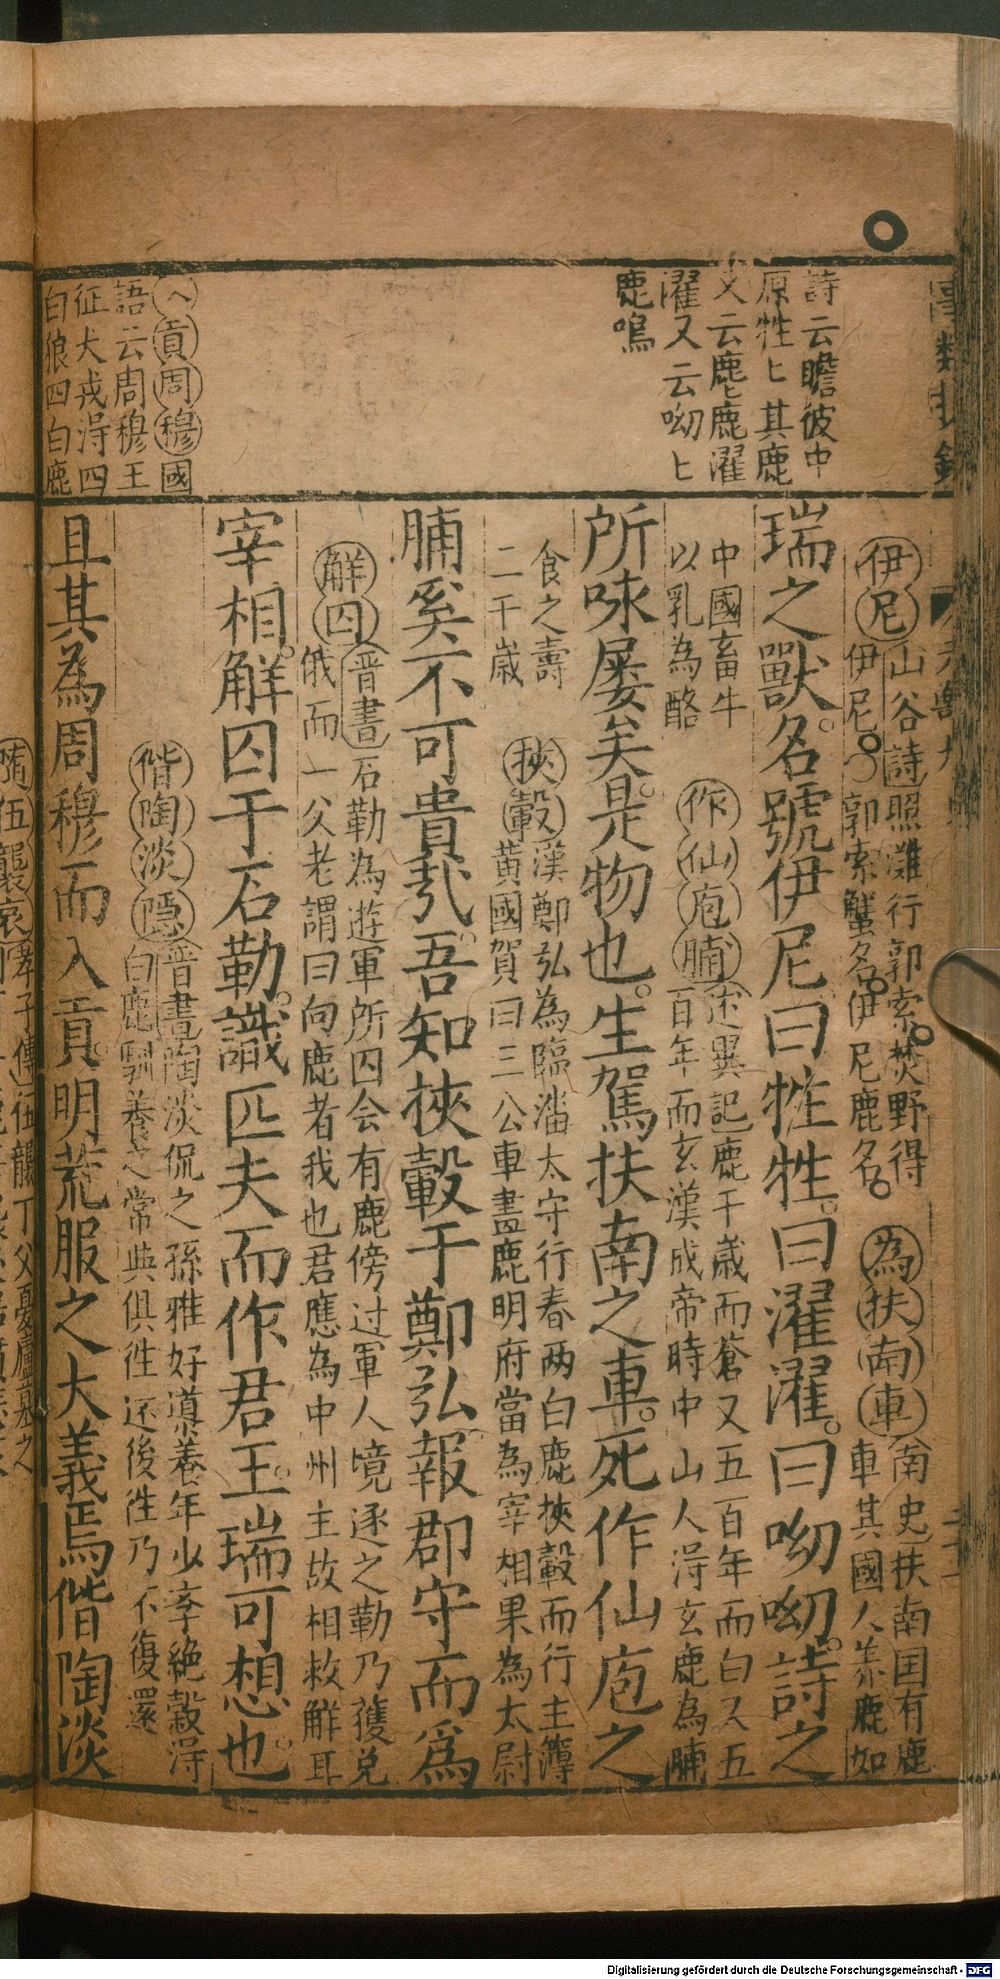 詩云瞻彼中
原牲〻其鹿
又云麀鹿濯
濯又云呦〻
鹿鳴
入貢周穆國
語云周穆王
征犬戎淂四
白狼四白鹿
伊尼山谷詩照灘行郭索焚野得
伊尼〇郭索蟹名伊尼鹿名
為扶南車南史扶南国有鹿
車其國人养鹿如
瑞之獸名號伊尼曰牲牲曰濯濯曰呦呦詩之
中國畜牛
以乳為酪
作仙庖脯述異記鹿千歲而蒼又五百年而白又五
百年而玄漢成帝時中山人淂玄鹿為脯
所咏屡矣是物也生駕扶南之車死作仙庖之
食之壽
二千歲
挾轂漢鄭弘為臨淄太守行春两白鹿挾轂而行主簿
黃國賀曰三公車畫鹿明府當為宰相果為太尉
脯奚不可貴㢤吾知挾轂于鄭弘報郡守而為
解囚晋書石勒為遊軍所囚会有鹿傍过軍人境逐之勒乃獲免
俄而一父老謂曰向鹿者我也君應為中州主故相救解耳
宰相解囚于石勒識匹夫而作君王瑞可想也
偕陶淡隱晋書陶淡侃之孫雅好遵养年少辛絶榖淂
白鹿馴養之常與俱徃还後徃乃不復還
且其為周穆而入貢明荒服之大義焉偕陶淡
Digitalisierung gefördert durch die Deutsche Forschungsgemeinschaft - DFG